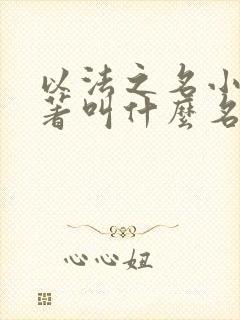 以法之名小
著叫什麼名
心心妞